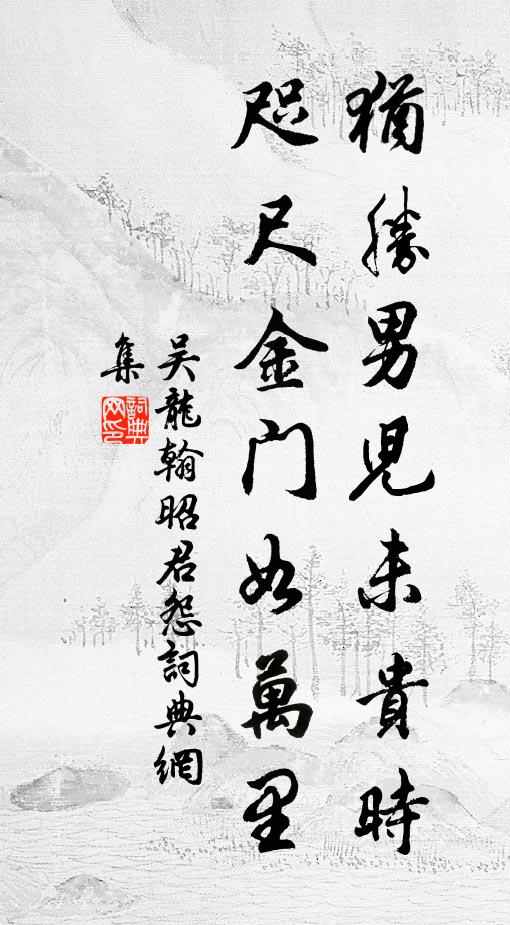 猶勝男兒未貴時
咫尺金门如萬里
吴龍翰昭君怨詞典網
集
詞典
网印